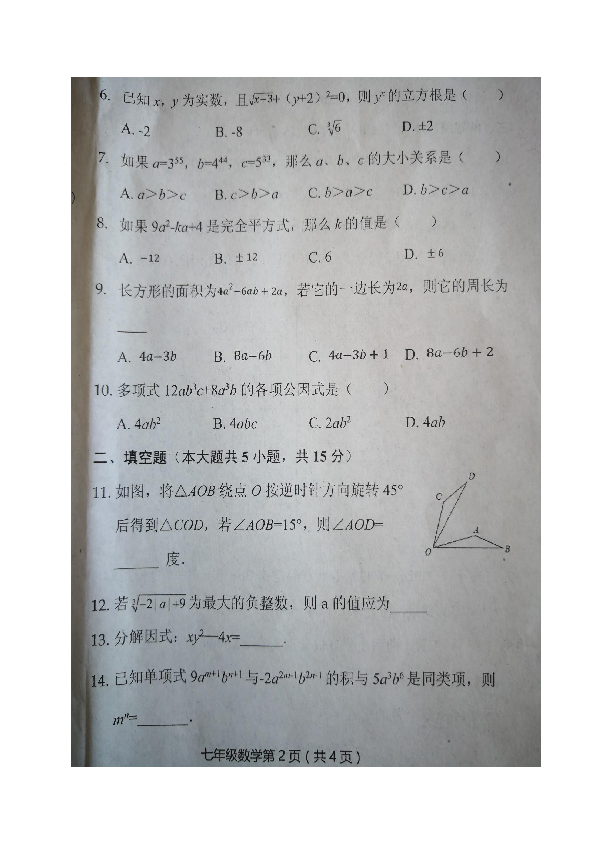 6. 已知 x, y 为实数，且√x-3+（y+2）²=0，则 yˣ 的立方根是（ ）
A. -2 B. -8 C. ∛6 D. ±2
7. 如果 a=3⁵⁵，b=4⁴⁴，c=5³³，那么 a、b、c 的大小关系是（ ）
A. a＞b＞c B. c＞b＞a C. b＞a＞c D. b＞c＞a
8. 如果 9a²-ka+4 是完全平方式，那么 k 的值是（ ）
A. −12 B. ±12 C. 6 D. ±6
9. 长方形的面积为4a²−6ab+2a，若它的一边长为2a，则它的周长为
____
A. 4a−3b B. 8a−6b C. 4a−3b+1 D. 8a−6b+2
10. 多项式 12ab³c+8a³b 的各项公因式是（ ）
A. 4ab² B. 4abc C. 2ab² D. 4ab
二、填空题（本大题共 5 小题，共 15 分）
11. 如图，将△AOB 绕点 O 按逆时针方向旋转 45°
后得到△COD，若∠AOB=15°，则∠AOD=
______ 度．
D
C
A
O
B
12. 若∛-2|a|+9为最大的负整数，则 a 的值应为_____
13. 分解因式：xy²—4x=______．
14. 已知单项式 9aᵐ⁺¹bⁿ⁺¹与-2a²ᵐ⁻¹b²ⁿ⁻¹的积与 5a³b⁶ 是同类项，则
mⁿ=_______．
七年级数学第 2 页（共 4 页）